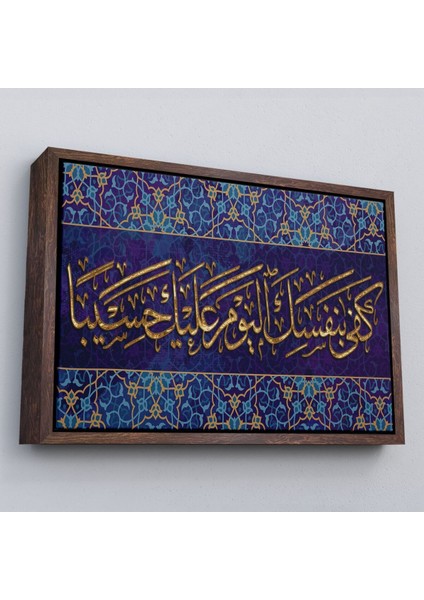 كَفَىٰ بِنَفْسِكَ الْيَوْمَ عَلَيْكَ حَسِيبًا